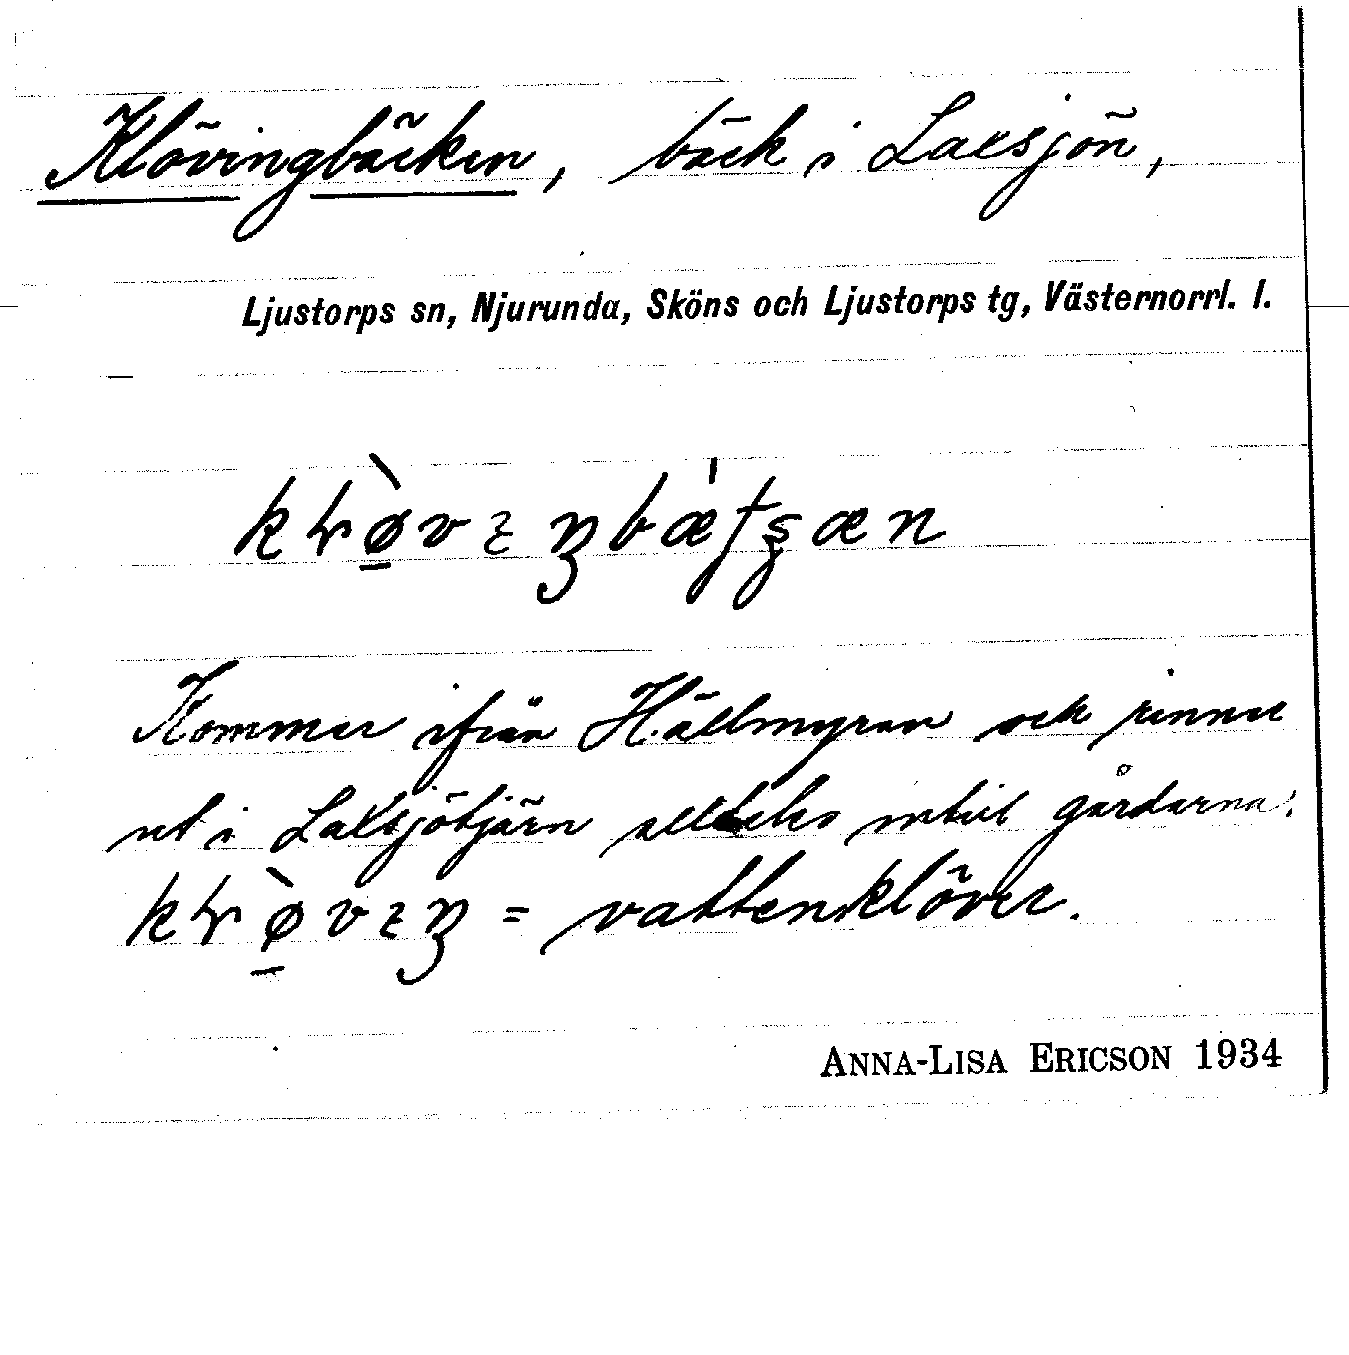 Klövingbäcken, bäck i Laxsjön,
Ljustorps sn, Njurunda, Sköns och Ljustorps tg, Västernorrl. l.
Kommer ifrån Hällmyran och rinner
ut i Laxsjötjärn alldeles intill gårdarna.
= vattenklöver.
ANNA-LISA ERICSON 1934